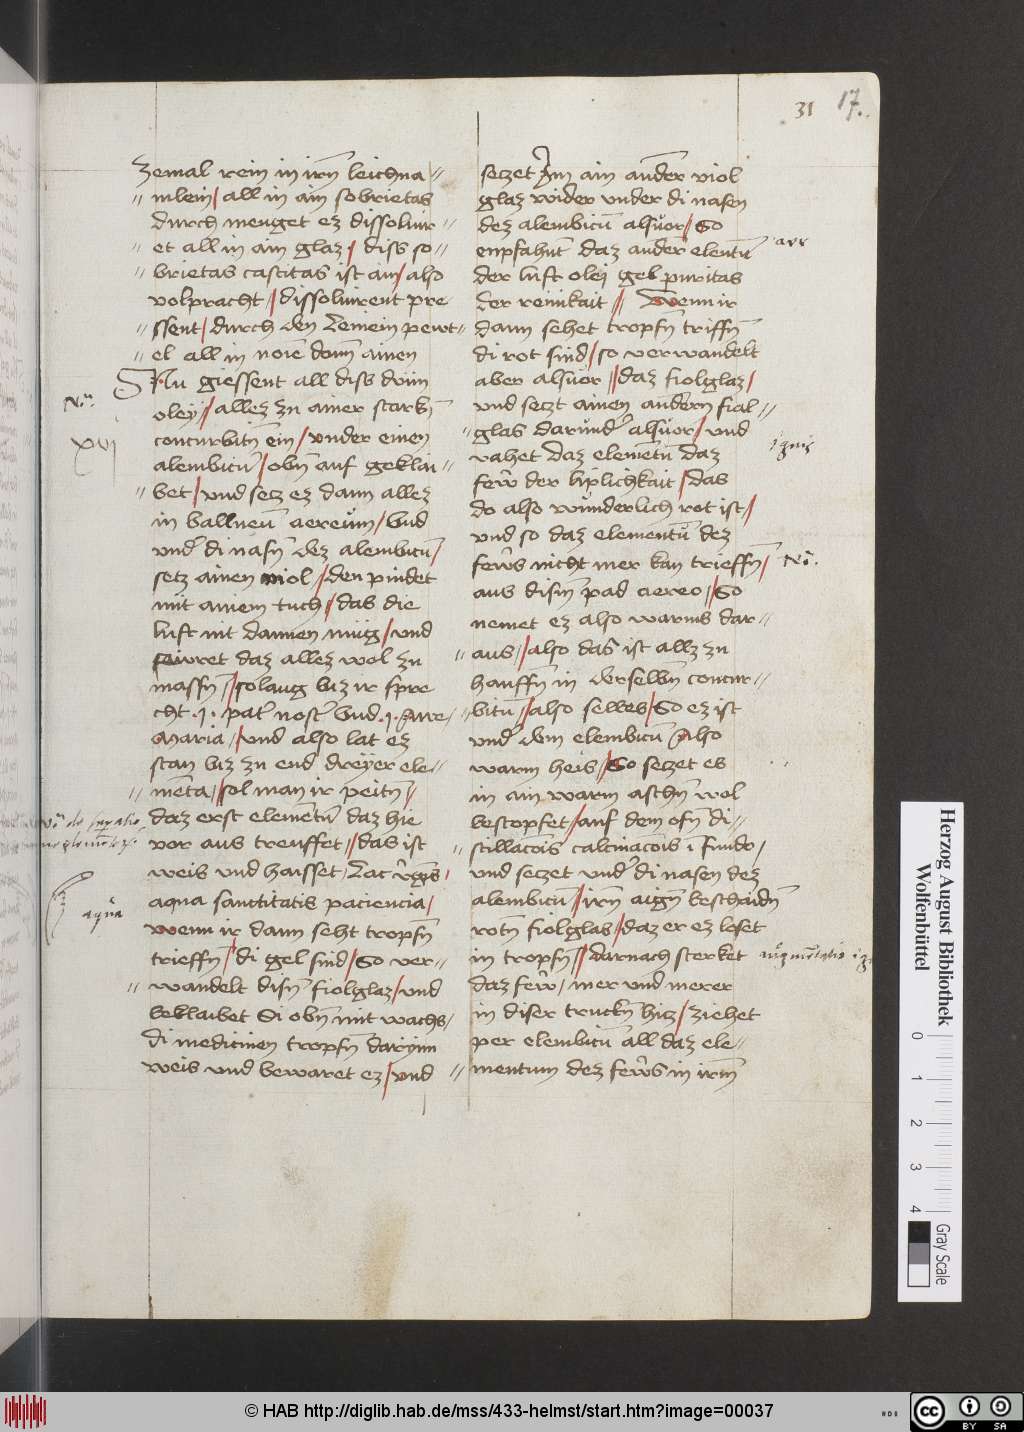 31 17.
zemal rein in irm̄ leichna //
// mlein / all in ain sobrietas
durch menget ez dissoluir //
// et all in ain glaz / diss so //
// brietas castitas ist ain / also
volpracht / dissoluirent pre
// ssent / durch den Lemein pewt //
// el all in noīe dom̄ amen
Nu giessent all diss drün
oley / allez zu ainer starkn̄
concurbitn̄ ein / vnder einen
alembicū / obn̄ auf geklai //
// bet / vnd setz ez dann allez
in ballneum̄ aereum / vnd
vnd' di nasn̄ dez alembicū /
setz ainen viol / den pindet
mit ainem tuch / das die
luft nit dannen müg / vnd
fewret daz allez wol zu
massn̄ / solang biz ir spre
cht .j. pat' nost' vnd .j. Aue //
Maria / vnd also lat ez
stan biz zu end dreyer ele //
// menta / sol man ir peitn̄ /
daz erst elementū daz hie
vor aus treuffet / das ist
weis vnd haisset / Lac v'gīs /
aqua sanctitatis paciencia /
wenn ir dann seht tropfn̄
trieffn̄ / di gel sind / So ver //
// wandelt disn̄ fiolglaz / vnd
beklaibet Si obn̄ mit wachs /
di medicinen tropfn̄ darynn
weis vnd bewaret ez / vnd
Nᵃ.
xvj
aqua
setzet Im ain ander viol
glaz wider vnder di nasen
dez alembicū alsuor / So
enpfahnt daz ander elentū
der luft olej gel puritas
der reinikait // Wenn ir
dann sehet tropfn̄ triffn̄
di rot sind / so verwandelt
aber alsuor // daz fiolglaz /
vnd setzt ainen andern fial //
// glas darund' alsuor / vnd
vahet daz elemetū daz
fewr der lüplichkait / das
do also wunderlich rot ist /
vnd so daz elementū dez
fewrs nicht mer kan trieffn̄ /
aus dism̄ pad aereo / So
nemet ez also warms dar //
// aus / also daz ist allz zu
hauffn̄ in derselbn̄ concur //
// bitū / also selbes / So ez ist
vnd' dem elembicū also
warm heis / So setzet es
in ain warm aschn̄ wol
bestopfet / auf dem ofn̄ di //
// stillacōis calcinacōis i fundo /
vnd setzet vnd' di nasen dez
alembicū / irn̄ aign̄ beschaidn̄
rotn̄ fiolglas / daz er ez leset
in tropfn̄ // darnach sterket
daz fewr / mer vnd merer
in diser truckn̄ hitz / ziehet
per elembicū all daz ele //
// mentum dez fewrs in irm̄
aer
ignis
Nᵃ.
Herzog August Bibliothek
Wolfenbüttel
0 1 2 3 4
Gray Scale
© HAB http://diglib.hab.de/mss/433-helmst/start.htm?image=00037
HAB
cc BY SA